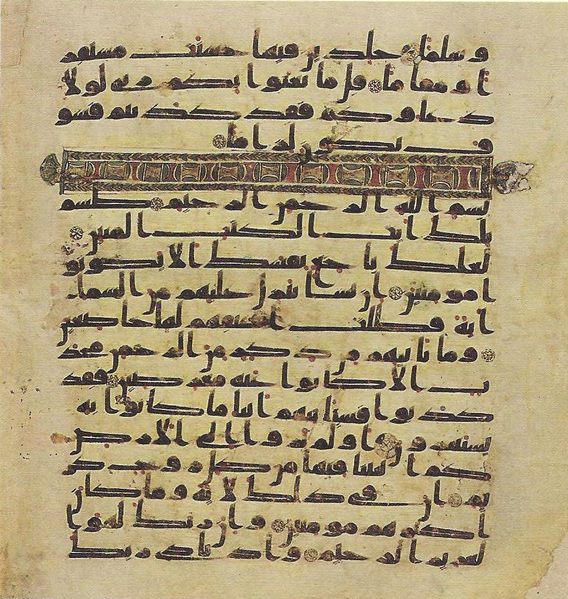 وسلما خلدين فيها حسنت مستقر
ا ومقاما قل ما يعبوا بكم ربي لولا
دعاوكم فقد كذبتم فسو
ف يكون لزاما
بسم الله الرحمن الرحيم طسم
تلك ايت الكتب المبين
لعلك باخع نفسك الا يكونو
ا مومنين ان نشا ننزل عليهم من السما
اية فظلت اعنقهم لها خاضعين
وما ياتيهم من ذكر من الرحمن محد
ث الا كانوا عنه معرضين فقد
كذبوا فسياتيهم انبا ما كانوا به
يستهزون اولم يروا الى الارض
كم انبتنا فيها من كل زوج كر
يم ان في ذلك لاية وما كان
اكثرهم مومنين وان ربك لهو ا
لعزيز الرحيم واذ نادى ربك